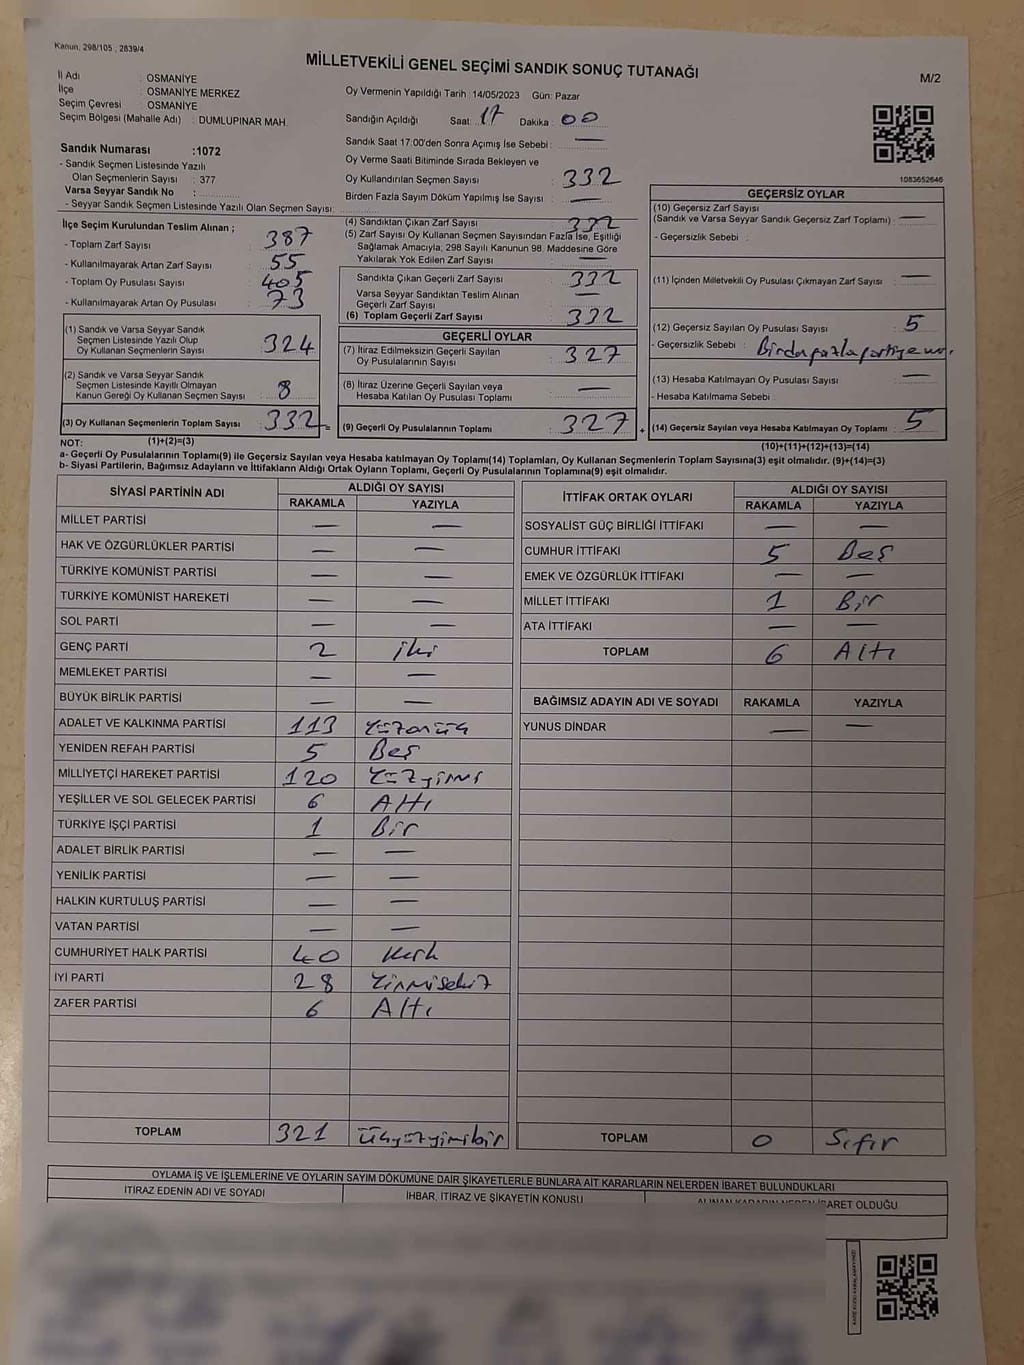 Kanun, 298/105 , 2839/4
MİLLETVEKİLİ GENEL SEÇİMİ SANDIK SONUÇ TUTANAĞI
M/2
İl Adı : OSMANİYE
İlçe : OSMANİYE MERKEZ
Seçim Çevresi : OSMANİYE
Seçim Bölgesi (Mahalle Adı) : DUMLUPINAR MAH.
Sandık Numarası :1072
- Sandık Seçmen Listesinde Yazılı
Olan Seçmenlerin Sayısı : 377
Varsa Seyyar Sandık No :
- Seyyar Sandık Seçmen Listesinde Yazılı Olan Seçmen Sayısı:
Oy Vermenin Yapıldığı Tarih :14/05/2023 Gün: Pazar
Sandığın Açıldığı Saat: 17 Dakika : 00
Sandık Saat 17:00'den Sonra Açımış İse Sebebi : —
Oy Verme Saati Bitiminde Sırada Bekleyen ve
Oy Kullandırılan Seçmen Sayısı : 332
Birden Fazla Sayım Döküm Yapılmış İse Sayısı : —
1083652646
İlçe Seçim Kurulundan Teslim Alınan ;
- Toplam Zarf Sayısı : 387
- Kullanılmayarak Artan Zarf Sayısı : 55
- Toplam Oy Pusulası Sayısı : 405
- Kullanılmayarak Artan Oy Pusulası : 73
(1) Sandık ve Varsa Seyyar Sandık
Seçmen Listesinde Yazılı Olup
Oy Kullanan Seçmenlerin Sayısı : 324
(2) Sandık ve Varsa Seyyar Sandık
Seçmen Listesinde Kayıtlı Olmayan
Kanun Gereği Oy Kullanan Seçmen Sayısı : 8
(3) Oy Kullanan Seçmenlerin Toplam Sayısı : 332 =
(4) Sandıktan Çıkan Zarf Sayısı : 332
(5) Zarf Sayısı Oy Kullanan Seçmen Sayısından Fazla İse, Eşitliği
Sağlamak Amacıyla; 298 Sayılı Kanunun 98. Maddesine Göre
Yakılarak Yok Edilen Zarf Sayısı : —
Sandıkta Çıkan Geçerli Zarf Sayısı : 332
Varsa Seyyar Sandıktan Teslim Alınan
Geçerli Zarf Sayısı : —
(6) Toplam Geçerli Zarf Sayısı : 332
GEÇERLİ OYLAR
(7) İtiraz Edilmeksizin Geçerli Sayılan
Oy Pusulalarının Sayısı : 327
(8) İtiraz Üzerine Geçerli Sayılan veya
Hesaba Katılan Oy Pusulası Toplamı : —
(9) Geçerli Oy Pusulalarının Toplamı : 327 +
GEÇERSİZ OYLAR
(10) Geçersiz Zarf Sayısı
(Sandık ve Varsa Seyyar Sandık Geçersiz Zarf Toplamı) : —
- Geçersizlik Sebebi :
(11) İçinden Milletvekili Oy Pusulası Çıkmayan Zarf Sayısı : —
(12) Geçersiz Sayılan Oy Pusulası Sayısı : 5
- Geçersizlik Sebebi : Birdenfazlapartiye
(13) Hesaba Katılmayan Oy Pusulası Sayısı : —
- Hesaba Katılmama Sebebi :
(14) Geçersiz Sayılan veya Hesaba Katılmayan Oy Toplamı : 5
NOT: (1)+(2)=(3)
(10)+(11)+(12)+(13)=(14)
a- Geçerli Oy Pusulalarının Toplamı(9) ile Geçersiz Sayılan veya Hesaba katılmayan Oy Toplamı(14) Toplamları, Oy Kullanan Seçmenlerin Toplam Sayısına(3) eşit olmalıdır. (9)+(14)=(3)
b- Siyasi Partilerin, Bağımsız Adayların ve İttifakların Aldığı Ortak Oyların Toplamı, Geçerli Oy Pusulalarının Toplamına(9) eşit olmalıdır.
SİYASİ PARTİNİN ADI ALDIĞI OY SAYISI
RAKAMLA YAZIYLA
MİLLET PARTİSİ — —
HAK VE ÖZGÜRLÜKLER PARTİSİ — —
TÜRKİYE KOMÜNİST PARTİSİ — —
TÜRKİYE KOMÜNİST HAREKETİ — —
SOL PARTİ — —
GENÇ PARTİ 2 iki
MEMLEKET PARTİSİ — —
BÜYÜK BİRLİK PARTİSİ — —
ADALET VE KALKINMA PARTİSİ 113 Yüzonüç
YENİDEN REFAH PARTİSİ 5 Beş
MİLLİYETÇİ HAREKET PARTİSİ 120 Yüzyirmi
YEŞİLLER VE SOL GELECEK PARTİSİ 6 Altı
TÜRKİYE İŞÇİ PARTİSİ 1 Bir
ADALET BİRLİK PARTİSİ — —
YENİLİK PARTİSİ — —
HALKIN KURTULUŞ PARTİSİ — —
VATAN PARTİSİ — —
CUMHURİYET HALK PARTİSİ 40 Kırk
İYİ PARTİ 28 Yirmisekiz
ZAFER PARTİSİ 6 Altı
TOPLAM 321 Üçyüzyirmibir
İTTİFAK ORTAK OYLARI ALDIĞI OY SAYISI
RAKAMLA YAZIYLA
SOSYALİST GÜÇ BİRLİĞİ İTTİFAKI — —
CUMHUR İTTİFAKI 5 Beş
EMEK VE ÖZGÜRLÜK İTTİFAKI — —
MİLLET İTTİFAKI 1 Bir
ATA İTTİFAKI — —
TOPLAM 6 Altı
BAĞIMSIZ ADAYIN ADI VE SOYADI RAKAMLA YAZIYLA
YUNUS DİNDAR — —
TOPLAM 0 Sıfır
OYLAMA İŞ VE İŞLEMLERİNE VE OYLARIN SAYIM DÖKÜMÜNE DAİR ŞİKAYETLERLE BUNLARA AİT KARARLARIN NELERDEN İBARET BULUNDUKLARI
İTİRAZ EDENİN ADI VE SOYADI İHBAR, İTİRAZ VE ŞİKAYETİN KONUSU ALINAN KARARIN NEDEN İBARET OLDUĞU